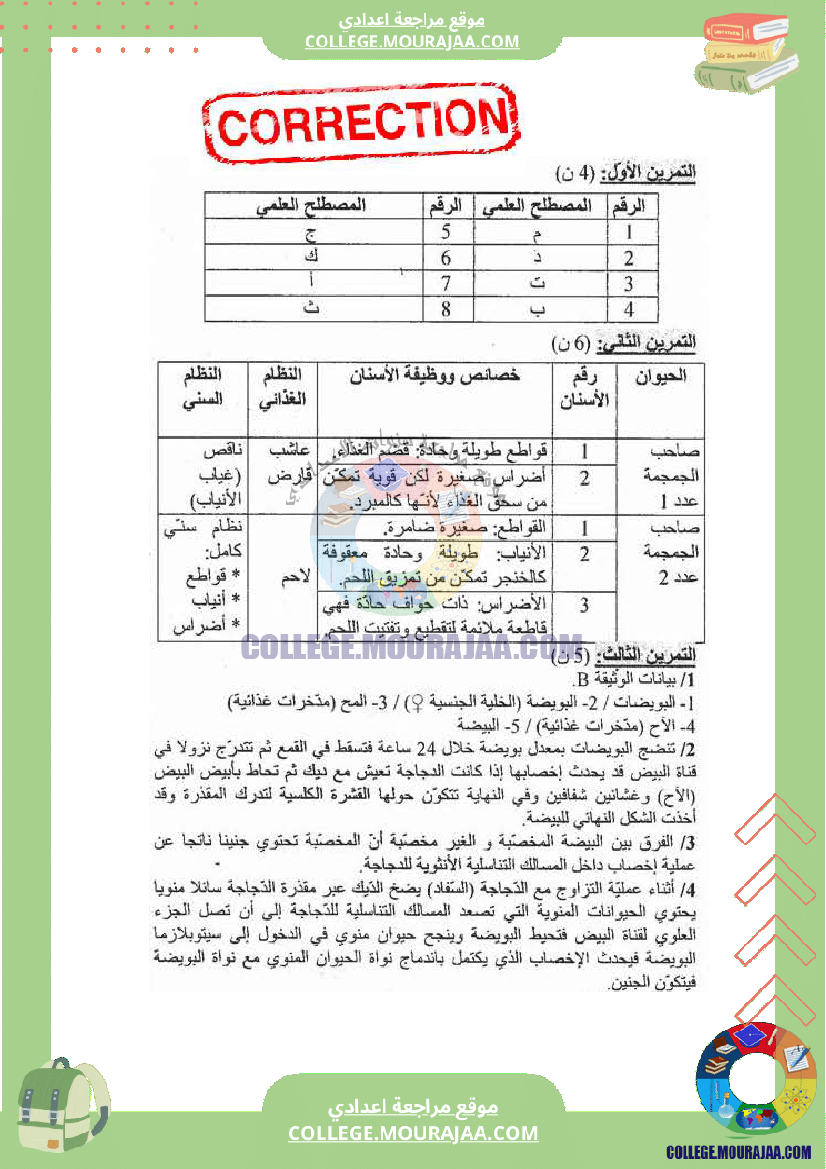 موقع مراجعة اعدادي
COLLEGE.MOURAJAA.COM
CORRECTION
التمرين الأول: (4 ن)
الرقم المصطلح العلمي الرقم المصطلح العلمي
1 م 5 ج
2 د 6 ك
3 ت 7 أ
4 ب 8 ث
التمرين الثاني: (6 ن)
الحيوان رقم الأسنان خصائص ووظيفة الأسنان النظام الغذائي النظام السني
صاحب الجمجمة عدد 1
1 قواطع طويلة وحادة: قضم الغذاء.
2 أضراس صغيرة لكن قوية تمكّن
من سحق الغذاء لأنها كالمبرد.
عاشب قارض
ناقص (غياب الأنياب)
صاحب الجمجمة عدد 2
1 القواطع: صغيرة ضامرة.
2 الأنياب: طويلة وحادة معقوفة
كالخنجر تمكّن من تمزيق اللحم.
3 الأضراس: ذات حواف حادّة فهي
قاطعة ملائمة لتقطيع وتفتيت اللحم.
لاحم
نظام سنّي
كامل:
* قواطع
* أنياب
* أضراس
COLLEGE.MOURAJAA.COM
التمرين الثالث: (5 ن)
1/ بيانات الوثيقة B.
1- البويضات / 2- البويضة (الخلية الجنسية ♀) / 3- المح (مدّخرات غذائية)
4- الآح (مدّخرات غذائية) / 5- البيضة
2/ تنضج البويضات بمعدل بويضة خلال 24 ساعة فتسقط في القمع ثم تتدرّج نزولا في
قناة البيض قد يحدث إخصابها إذا كانت الدجاجة تعيش مع ديك ثم تحاط بأبيض البيض
(الآح) وغشائين شفافين وفي النهاية تتكوّن حولها القشرة الكلسية لتدرك المقذرة وقد
أخذت الشكل النهائي للبيضة.
3/ الفرق بين البيضة المخصّبة و الغير مخصّبة أنّ المخصّبة تحتوي جنينا ناتجا عن
عملية إخصاب داخل المسالك التناسلية الأنثوية للدجاجة.
4/ أثناء عمليّة التزاوج مع الدّجاجة (السّفاد) يضخ الدّيك عبر مقذرة الدّجاجة سائلا منويا
يحتوي الحيوانات المنوية التي تصعد المسالك التناسلية للدّجاجة إلى أن تصل الجزء
العلوي لقناة البيض فتحيط البويضة وينجح حيوان منوي في الدخول إلى سيتوبلازما
البويضة فيحدث الإخصاب الذي يكتمل بأندماج نواة الحيوان المنوي مع نواة البويضة
فيتكوّن الجنين.
موقع مراجعة اعدادي
COLLEGE.MOURAJAA.COM
COLLEGE.MOURAJAA.COM